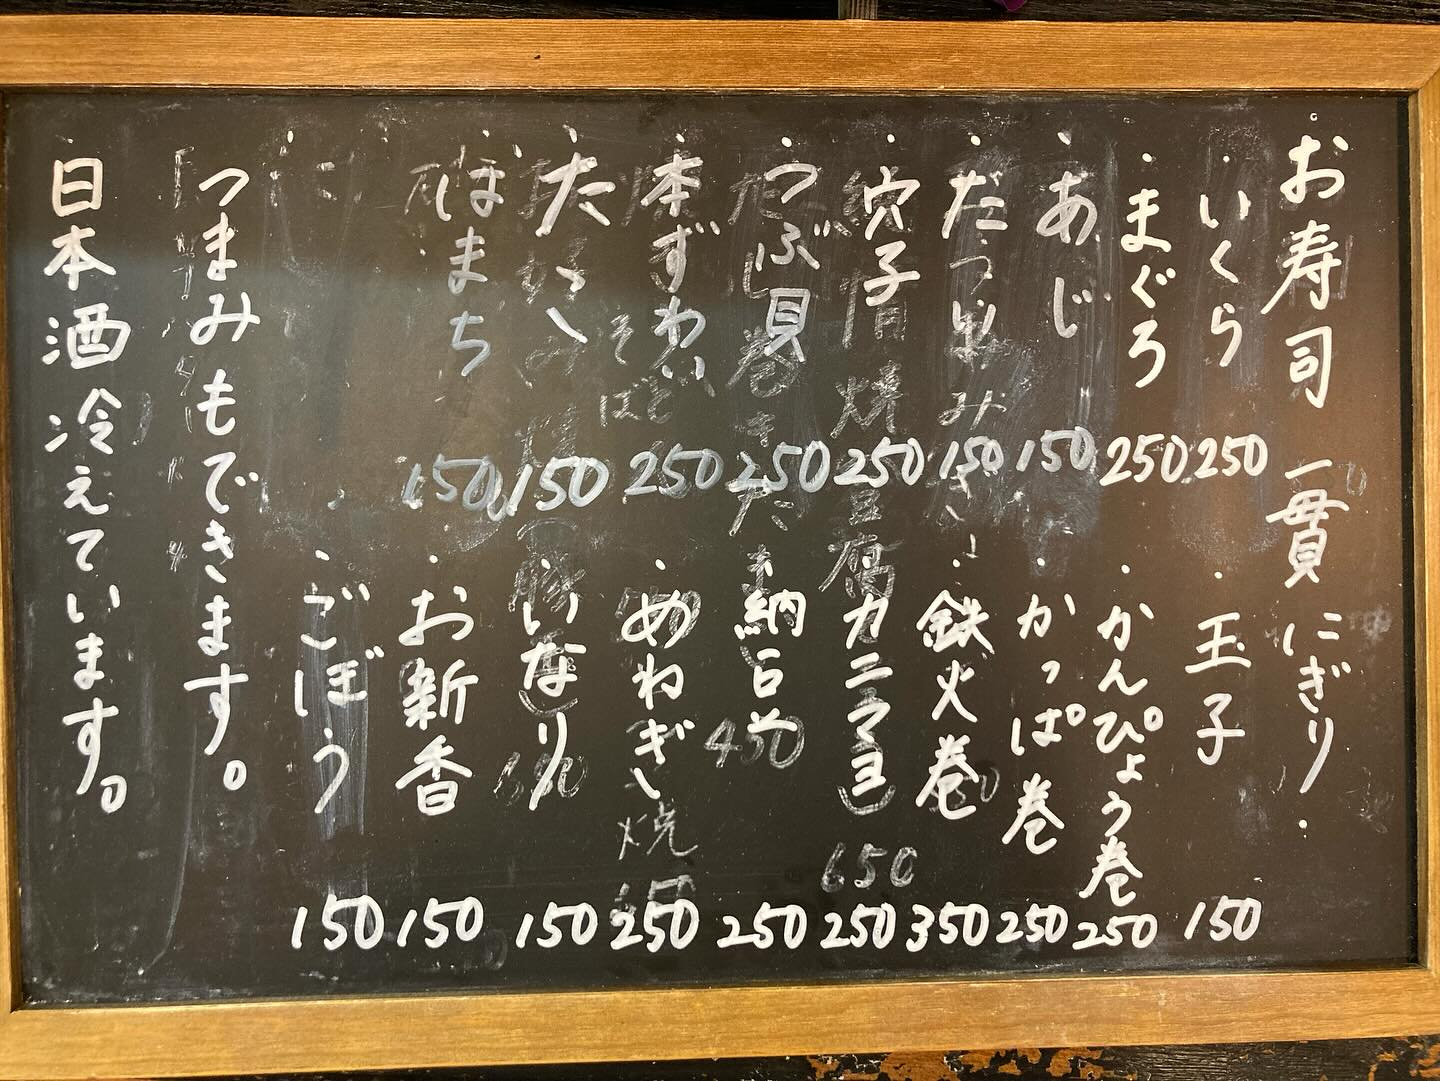 お寿司 一貫 にぎり.
・いくら 250
・まぐろ 250
・あじ 150
・だし
巻み 150
・穴子 250
・つぶ貝 250
・本ずわい 250
・たこ 150
・ほまち 150
・玉子 150
・かんぴょう巻 250
・かっぱ巻 250
・鉄火巻 350
・カニマヨ 250
・納豆 250
・めねぎ 250
・いなり 150
・お新香 150
・ごぼう 150
つまみもできます。
日本酒 冷えています。
450
650
焼